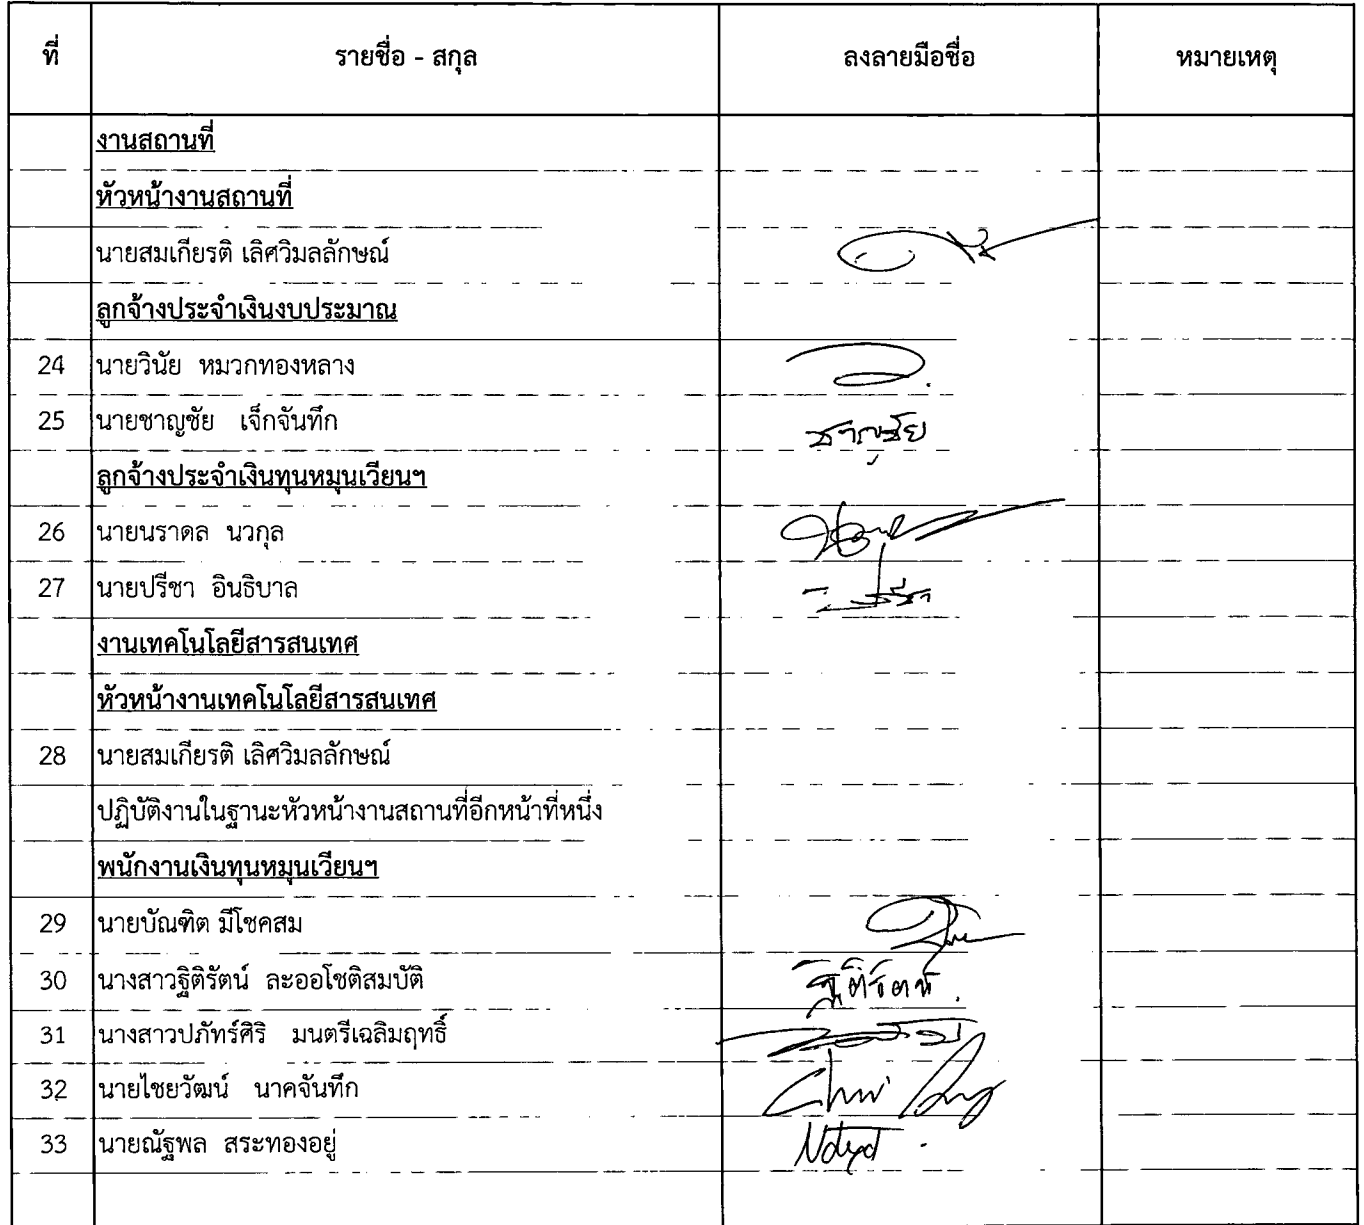 ที่ รายชื่อ - สกุล ลงลายมือชื่อ หมายเหตุ
งานสถานที่
หัวหน้างานสถานที่
นายสมเกียรติ เลิศวิมลลักษณ์
ลูกจ้างประจำเงินงบประมาณ
24 นายวินัย หมวกทองหลาง
25 นายชาญชัย เจ็กจันทึก ชาญชัย
ลูกจ้างประจำเงินทุนหมุนเวียนฯ
26 นายนราดล นวกุล
27 นายปรีชา อินธิบาล
งานเทคโนโลยีสารสนเทศ
หัวหน้างานเทคโนโลยีสารสนเทศ
28 นายสมเกียรติ เลิศวิมลลักษณ์
ปฏิบัติงานในฐานะหัวหน้างานสถานที่อีกหน้าที่หนึ่ง
พนักงานเงินทุนหมุนเวียนฯ
29 นายบัณฑิต มีโชคสม
30 นางสาวฐิติรัตน์ ละออโชติสมบัติ ฐิติรัตน์
31 นางสาวปภัทร์ศิริ มนตรีเฉลิมฤทธิ์
32 นายไชยวัฒน์ นาคจันทึก
33 นายณัฐพล สระทองอยู่